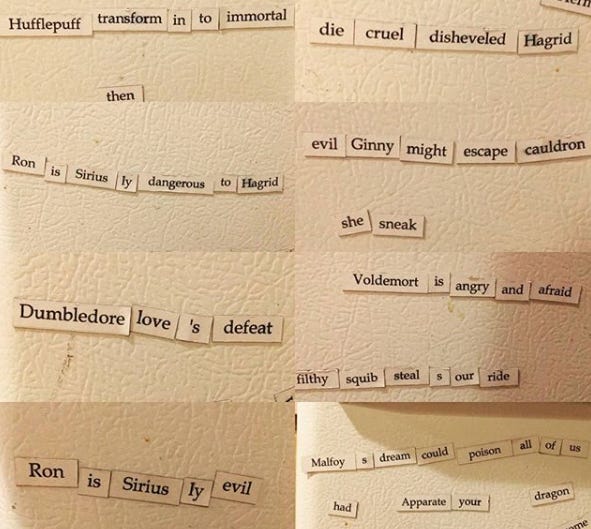 Hufflepuff transform in to immortal
then
die cruel disheveled Hagrid
Ron is Sirius ly dangerous to Hagrid
evil Ginny might escape cauldron
she sneak
Dumbledore love 's defeat
Voldemort is angry and afraid
filthy squib steal s our ride
Ron is Sirius ly evil
Malfoy s dream could poison all of us
had Apparate your dragon